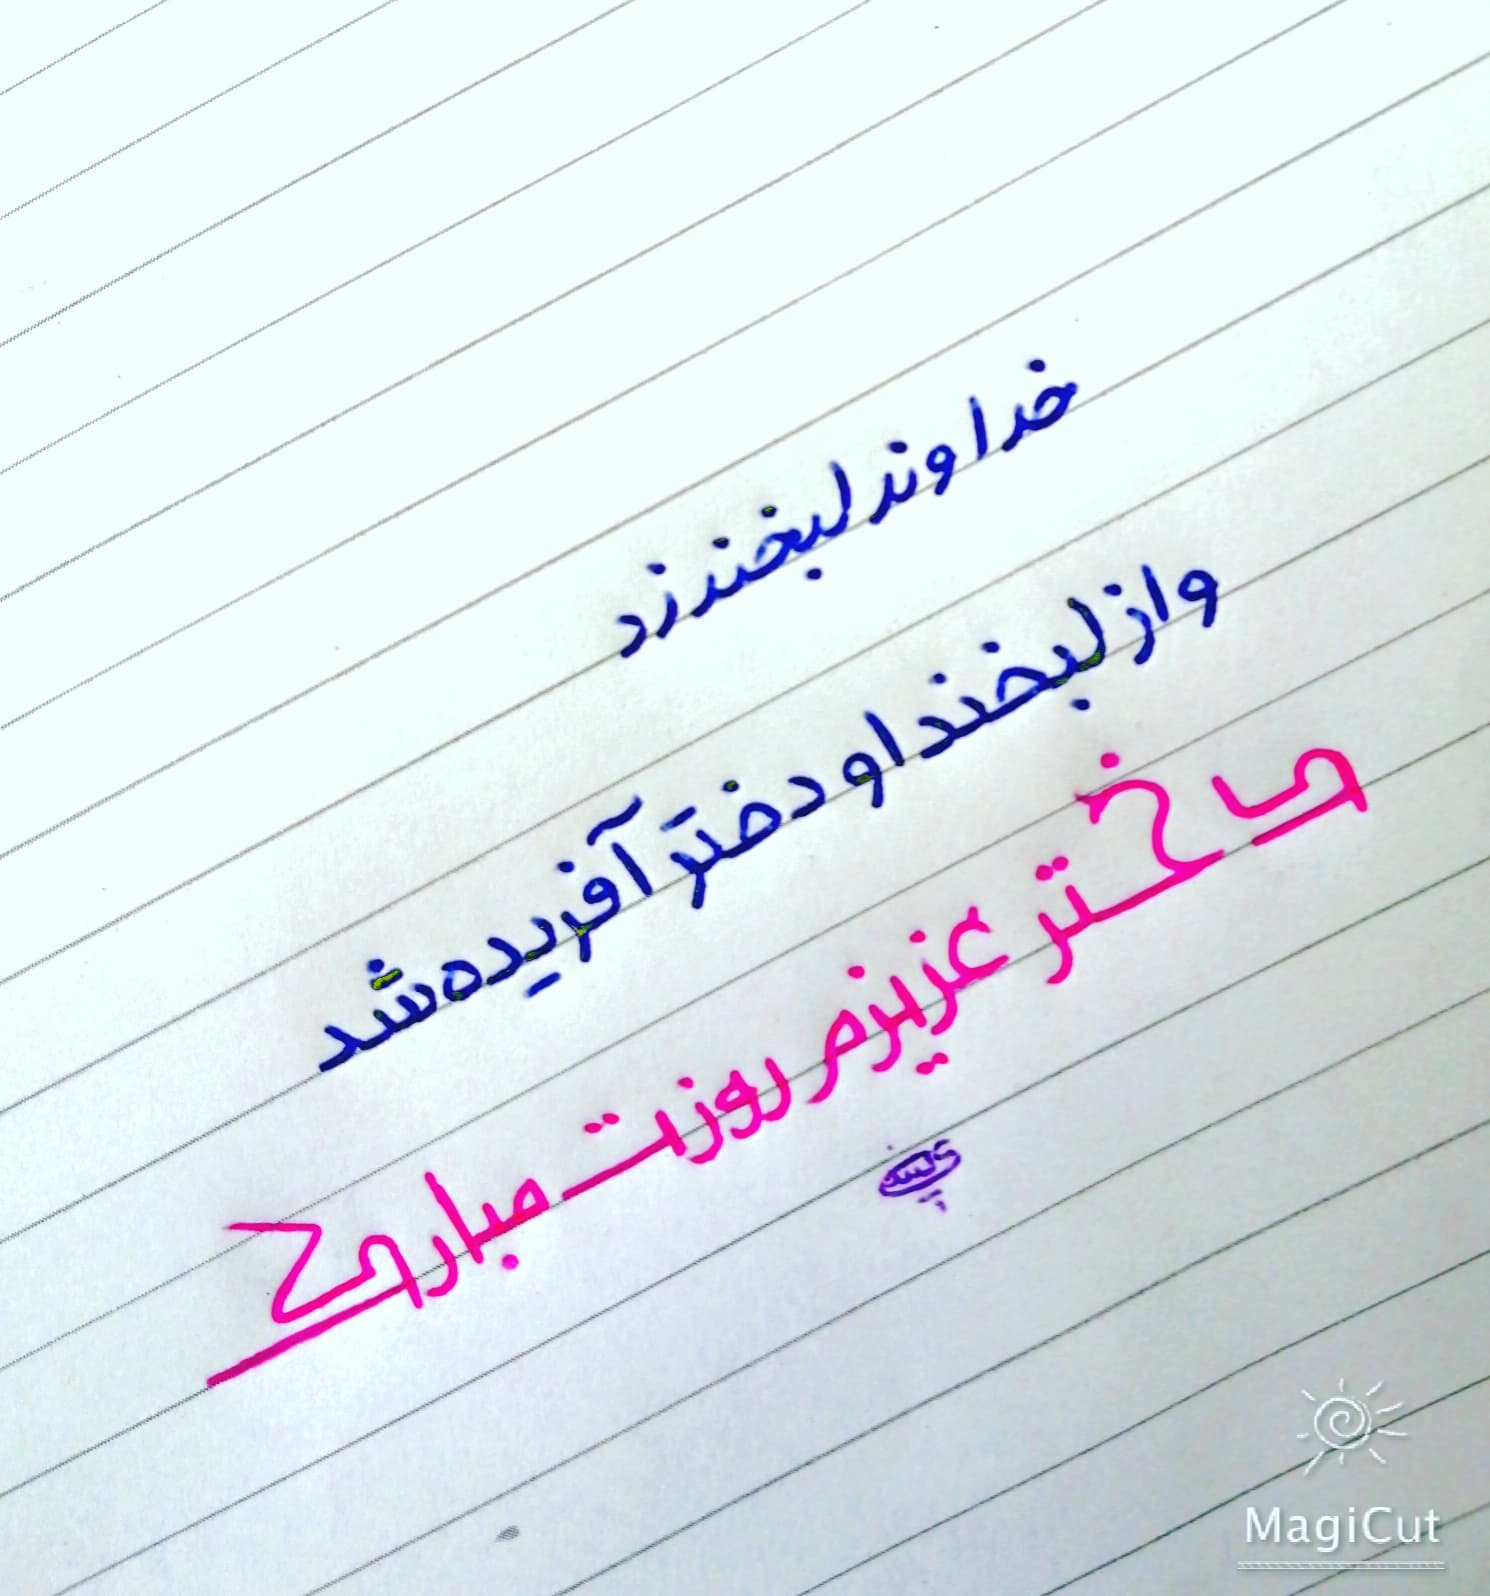 خداوند لبخند زد
و از لبخند او دختر آفریده شد
دختر عزیزم روزت مبارک
MagiCut